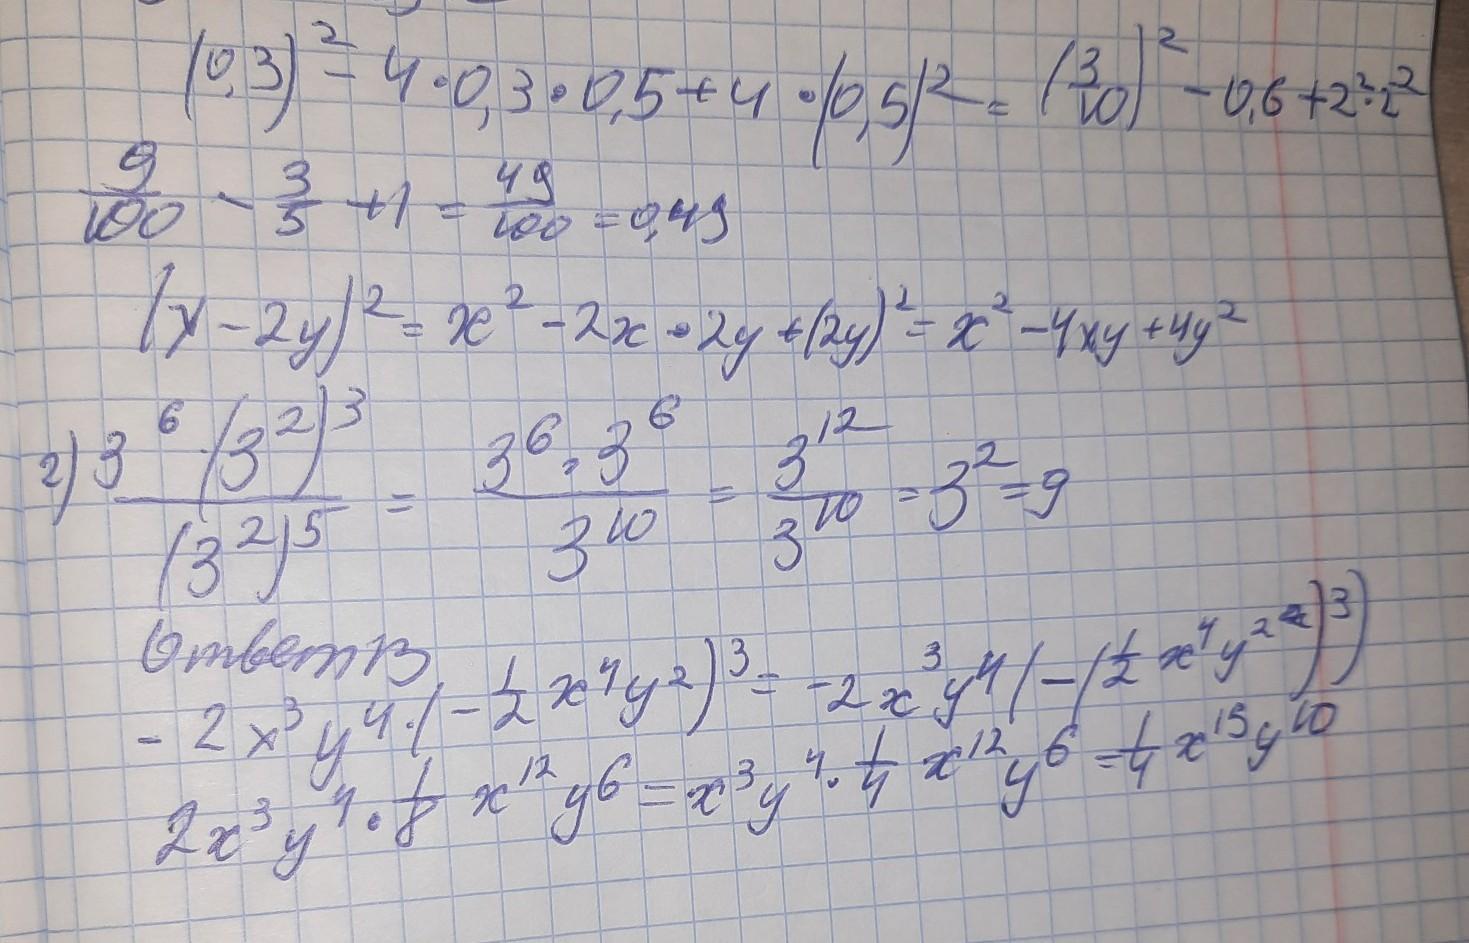 (0,3)² - 4·0,3·0,5+4·(0,5)² = (3/10)² - 0,6+2²·2⁻²
9/100 - 3/5 +1 = 49/100 = 0,49
(x-2y)² = x² - 2x·2y+(2y)² = x² - 4xy+4y²
2) 3⁶·(3²)³/(3²)⁵ = 3⁶·3⁶/3¹⁰ = 3¹²/3¹⁰ = 3² = 9
Ответ В
- 2x³y⁴·(-1/2 x⁴y²)³ = -2x³y⁴(-(1/2 x⁴y²)³)
2x³y⁴·1/8 x¹²y⁶ = x³y⁴·1/4 x¹²y⁶ = 1/4 x¹⁵y¹⁰